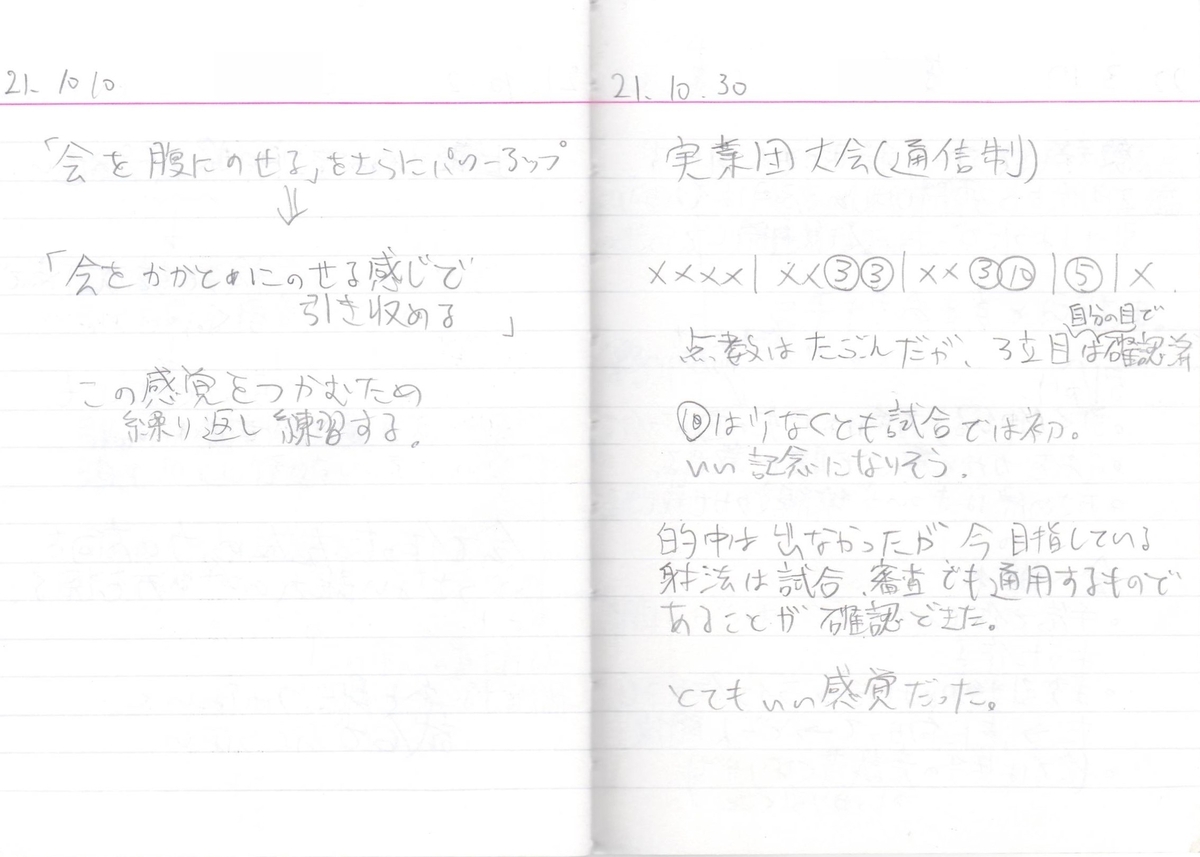 21. 10 10
「会を腹にのせる」をさらにパワーアップ
⇓
「会をかかとにのせる感じで
引き収める 」
この感覚をつかむため
繰り返し練習する。
21. 10. 30
実業団大会(通信制)
××××| ××③③|××③⑩|⑤|×.
自分の目で
点数はたぶんだが、3立目は確認済
⑩は少なくとも試合では初。
いい記念になりそう.
的中は出なかったが今目指している
射法は試合、審査でも通用するもので
あることが確認できた。
とてもいい感覚だった。